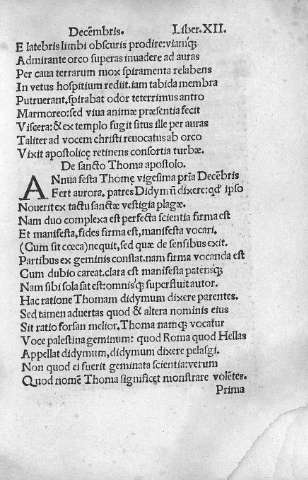 Decẽmbris. Liber.XII.
E latebris limbi obscuris prodire:viamq̃
Admirante orco superas inuadere ad auras
Per caua terrarum mox spiramenta relabens
In vetus hospitium rediit.iam tabida membra
Putruerant,spirabat odor teterrimus antro
Marmoreo:sed viua animæ præsentia fecit
Viscera:& ex templo fugit situs ille per auras
Taliter ad vocem christi reuocatus ab orco
Vixit apostolicę retinens consortia turbæ.
De sancto Thoma apostolo.
ANnua festa Thomę vigesima pṙia Decẽbris
Fert aurora. patres Didymũ dixere:qđ ipso
Nouerit ex tactu sanctæ vestigia plagæ.
Nam duo complexa est perfecta scientia firma est
Et manifesta, fides firma est, manifesta vocari,
(Cum sit cœca) nequit, sed quæ de sensibus exit.
Partibus ex geminis constat. nam firma vocanda est
Cum dubio careat. clara est manifesta patensq̃.
Nam sibi sola sat est: omnisq̃ superfluit autor.
Hac ratione Thomam didymum dixere parentes.
Sed tamen aduertas quod & altera nominis eius
Sit ratio forsan melior. Thoma namq̃ vocatur
Voce palestina geminum: quod Roma quod Hellas
Appellat didymum, didymum dixere pelasgi.
Non quod ei fuerit geminata scientia: verum
Quod nomẽ Thoma significet monstrare volẽtes.
Prima